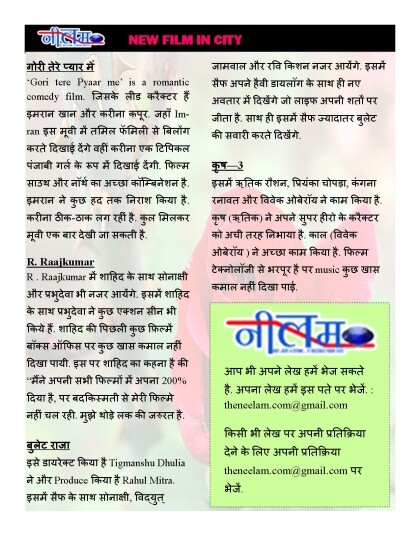 नीलम
NEW FILM IN CITY
गोरी तेरे प्यार में
‘Gori tere Pyaar me’ is a romantic
comedy film. जिसके लीड करैक्टर हैं
इमरान खान और करीना कपूर. जहाँ Im-
ran इस मूवी में तमिल फॅमिली से बिलोंग
करते दिखाई देंगे वहीं करीना एक टिपिकल
पंजाबी गर्ल के रूप में दिखाई देंगी. फिल्म
साउथ और नॉर्थ का अच्छा कॉम्बिनेशन है.
इमरान ने कुछ हद तक निराश किया है.
करीना ठीक-ठाक लग रहीं है. कुल मिलकर
मूवी एक बार देखी जा सकती है.
R. Raajkumar
R . Raajkumar में शाहिद के साथ सोनाक्षी
और प्रभुदेवा भी नजर आयेंगे. इसमें शाहिद
के साथ प्रभुदेवा ने कुछ एक्शन सीन भी
किये हैं. शाहिद की पिछली कुछ फ़िल्में
बॉक्स ऑफिस पर कुछ खास कमाल नहीं
दिखा पायी. इस पर शाहिद का कहना है की
“मैंने अपनी सभी फिल्मों में अपना 200%
दिया है, पर बदकिस्मती से मेरी फिल्मे
नहीं चल रही. मुझे थोड़े लक की जरुरत है.
बुलेट राजा
इसे डायरेक्ट किया है Tigmanshu Dhulia
ने और Produce किया है Rahul Mitra.
इसमें सैफ के साथ सोनाक्षी, विद्युत्
जामवाल और रवि किशन नजर आयेंगे. इसमें
सैफ अपने हैवी डायलॉग के साथ ही नए
अवतार में दिखेंगे जो लाइफ अपनी शर्तों पर
जीता है. साथ ही इसमें सैफ ज्यादातर बुलेट
की सवारी करते दिखेंगे.
कृष—3
इसमें ऋतिक रौशन, प्रियंका चोपड़ा, कंगना
रनावत और विवेक ओबेरॉय ने काम किया है.
कृष (ऋतिक) ने अपने सुपर हीरो के करैक्टर
को अची तरह निभाया है. काल (विवेक
ओबेरॉय ) ने अच्छा काम किया है. फिल्म
टेक्नोलॉजी से भरपूर है पर music कुछ खास
कमाल नहीं दिखा पाई.
नीलम
आप भी अपने लेख हमें भेज सकते
है. अपना लेख हमें इस पते पर भेजें. :
theneelam.com@gmail.com
किसी भी लेख पर अपनी प्रतिक्रिया
देने के लिए अपनी प्रतिक्रिया
theneelam.com@gmail.com पर
भेजें.